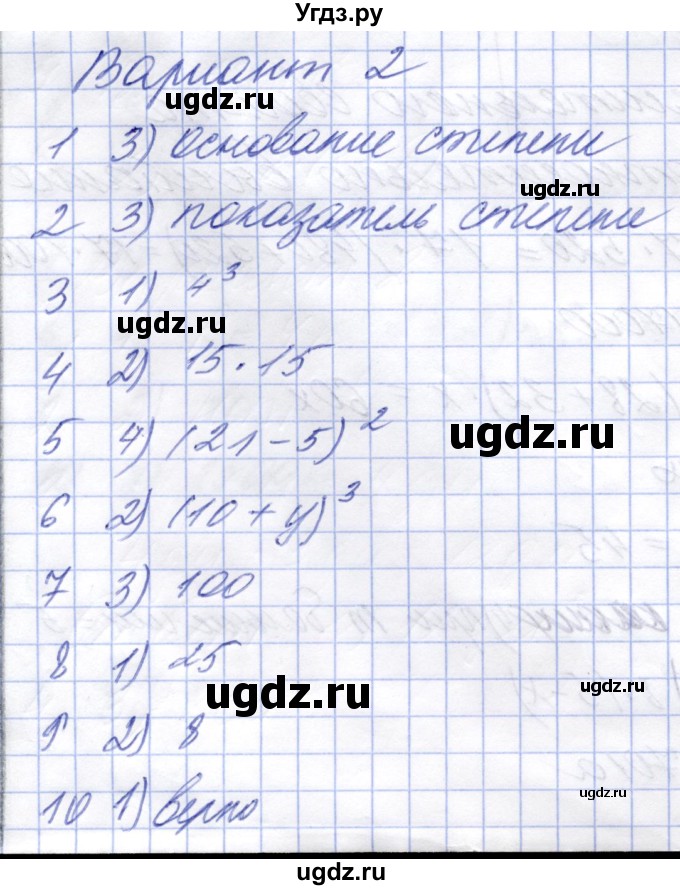 Угдз.ру
Вариант 2
ugdz.ru
1 3) основание степени
ugdz.ru
2 3) показатель степени
3 1) 4³
ugdz.ru
4 2) 15·15
5 4) (21-5)²
ugdz.ru
6 2) (10+y)³
7 3) 100
8 1) 25
ugdz.ru
ugdz.ru
9 2) 8
10 1) верно
ugdz.ru